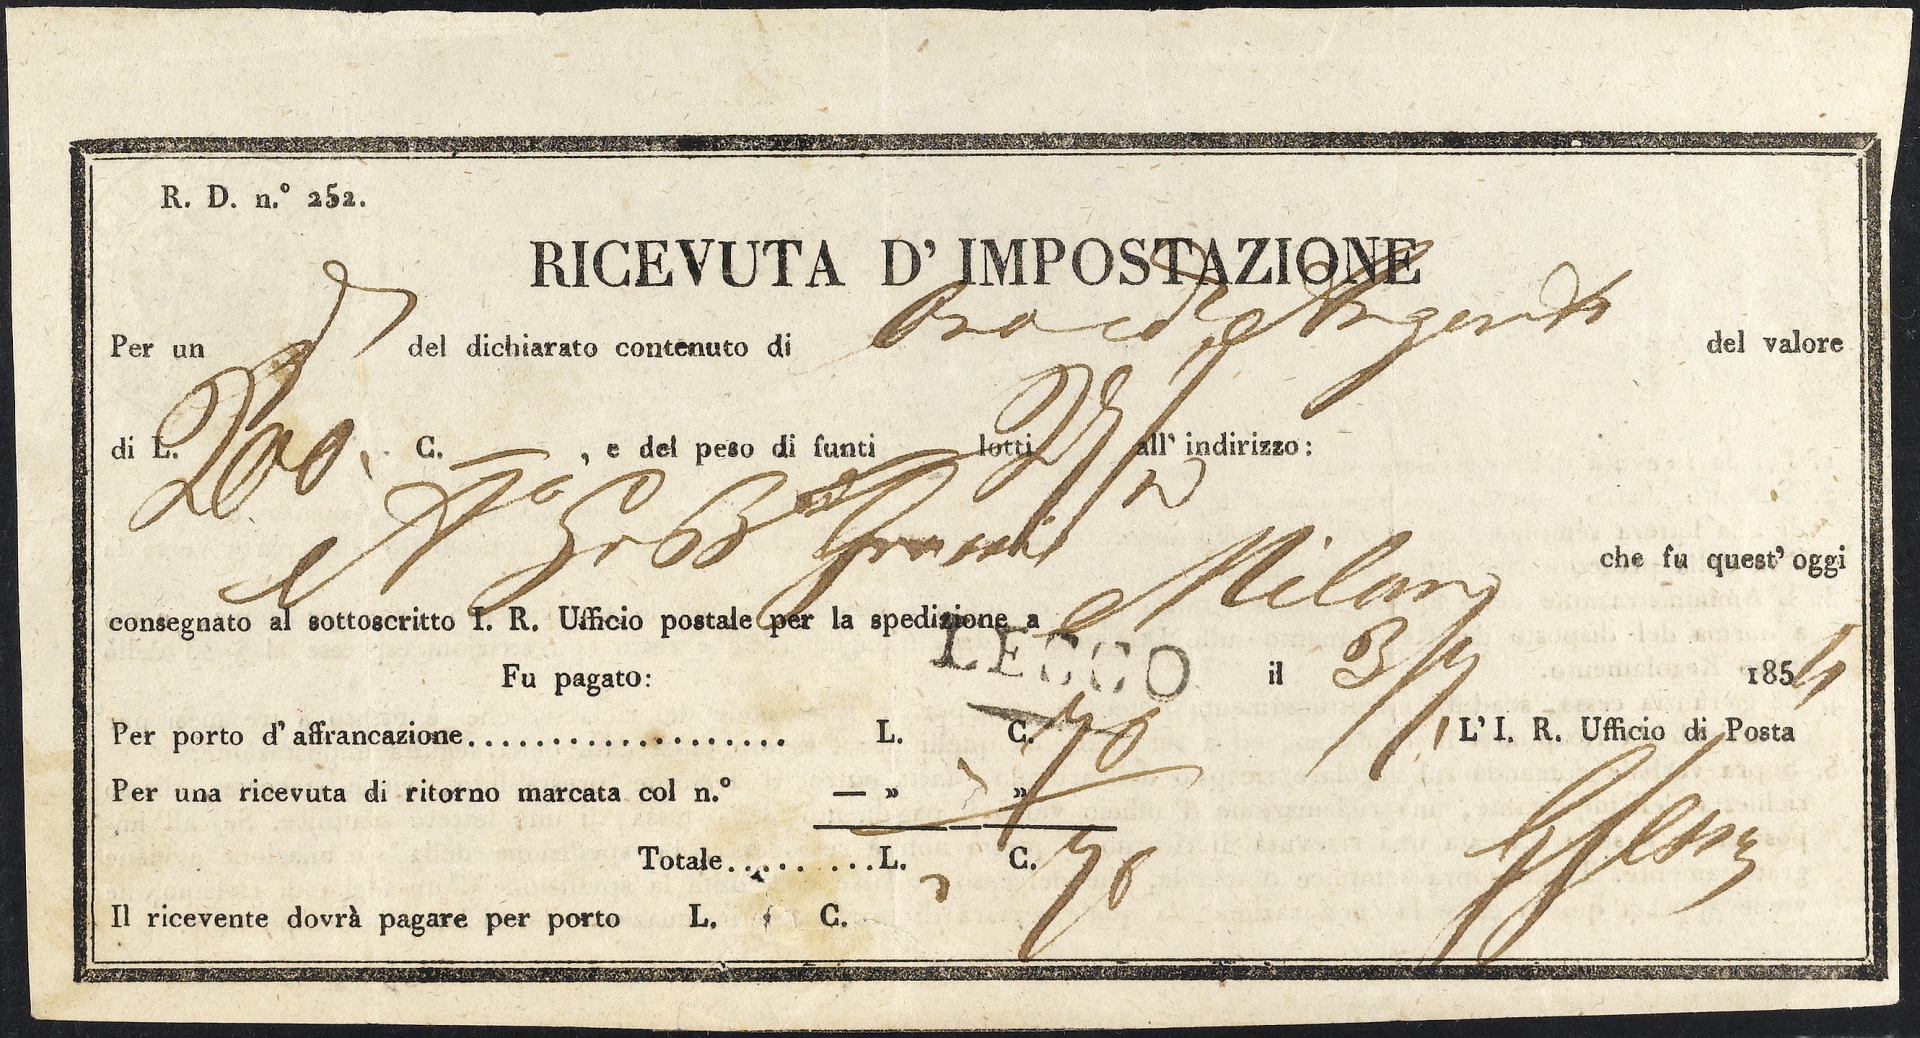 R. D. n.º 252.
RICEVUTA D' IMPOSTAZIONE
Per un del dichiarato contenuto di del valore
di L. 200. C. — , e del peso di funti — lotti all' indirizzo:
che fu quest' oggi
consegnato al sottoscritto I. R. Ufficio postale per la spedizione a Milano
LECCO
Fu pagato: il 185
Per porto d' affrancazione................... L. C. 70
L' I. R. Ufficio di Posta
Per una ricevuta di ritorno marcata col n.º — » »
Totale..... .....L. C. 70
Il ricevente dovrà pagare per porto L. C.